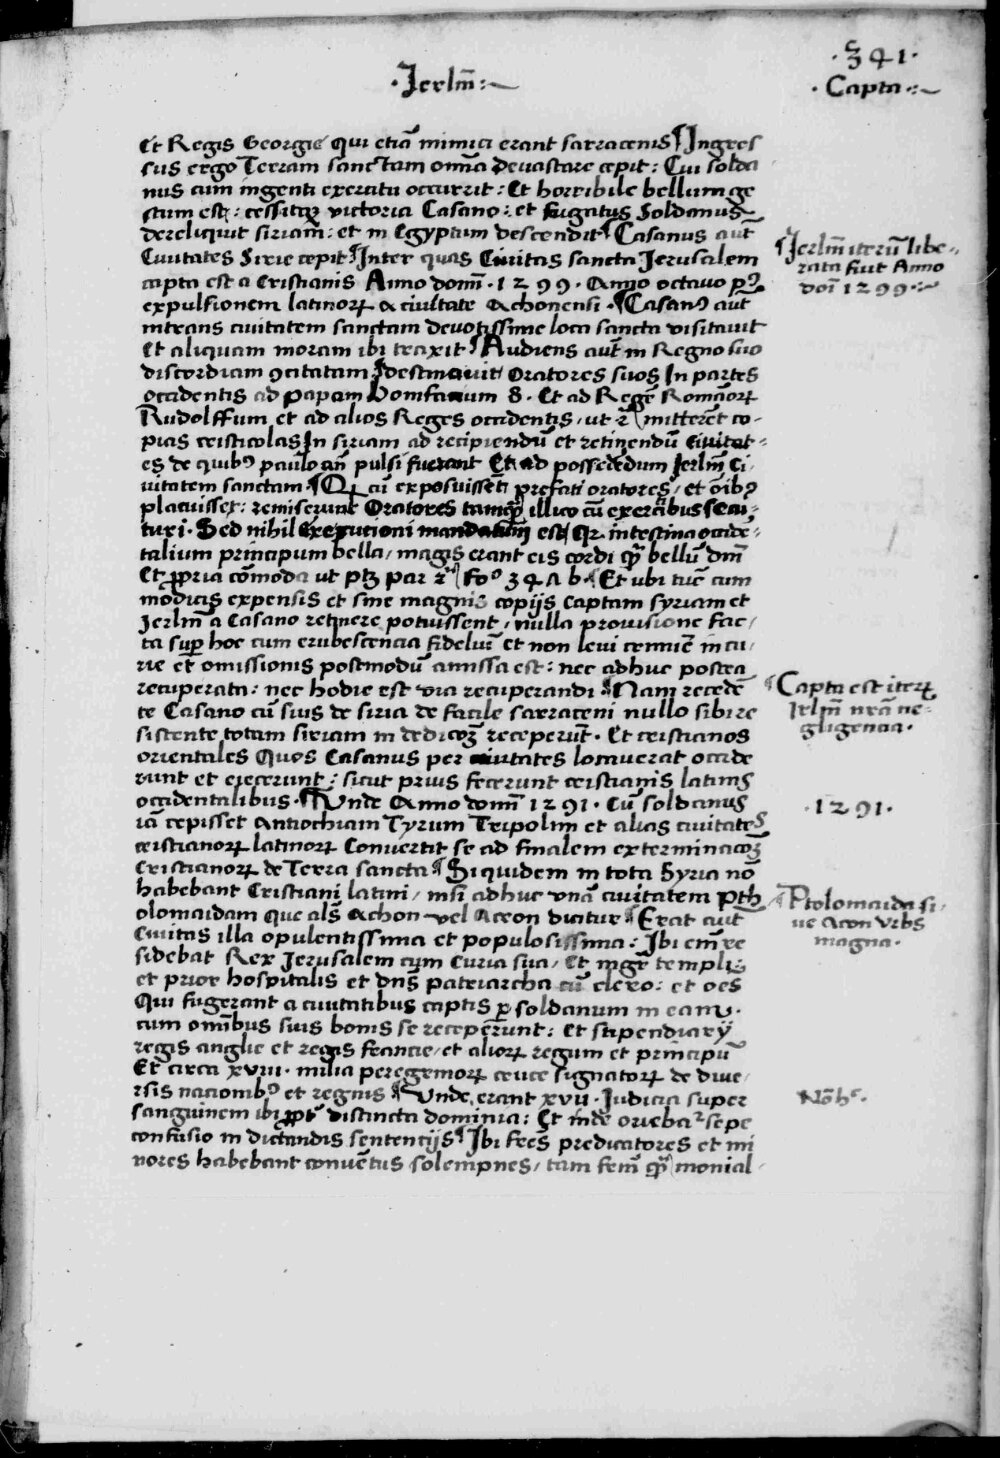 ·Jerlm̄:~
·341·
·Capta·:~
Et Regis Georgie Qui etiā inimici erant sarracenis ¶ Ingres
sus ergo Terram sanctam omnia devastare cepit: Cui solda
nus cum ingenti exercitu occurrit: Et horribile bellum ge
stum est: cessitqꝫ victoria Casano: et fugatus Soldanus
dereliquit siriam: et in Egyptum descendit ¶ Casanus aut̄
Civitates Sirie cepit ¶ Inter quas Civitas sancta Jerusalem
capta est a Cristianis Anno domī · 1299 · Anno octavo pꝰ
expulsionem latinoꝝ a civitate Achonensi · ¶ Casanꝰ aut̄
intrans civitatem sanctam devotissime loca sancta visitavit
Et aliquam moram ibi traxit ¶ Audiens aut̄ in Regno suo
discordiam ꝯcitatam ¶ destinavit Oratores suos In partes
occidentis ad papam Bonifacium 8 · Et ad Regē Romanoꝝ
Rudolffum et ad alios Reges occidentis, ut mitterēt co-
pias cristicolas In siriam ad recipiendū et retinendū Civitat-
es de quibꝰ paulo an̄ pulsi fuerant Et ad possedēdum Jerlm̄ Ci,
vitatem sanctam · ¶ Q cū exposuissēt prefati oratores, et oībꝰ
placuisset: remiserunt Oratores tamqꝫ illico cū exercibus secu-
turi · Sed nihil Executioni mandatum est Qꝛ intestina occidē-
talium principum bella, magis erant eis cordi qꝫ bellū dn̄i
Et ꝓpria cōmoda ut ptꝫ par 2ª Foº 34 A b · ¶ Et ubi tūc cum
modicis expensis et sine magnis copijs captam syriam et
Jerlm̄ a Casano retinere potuissent, nulla provisione fac,
ta suꝑ hoc cum erubescencia fideliū et non levi crimīe incu,
rie et omissionis postmodū amissa est: nec adhuc postea
recuperata: nec hodie est via recuperandi ¶ Nam recedē
te Casano cū suis de siria de facile sarraceni nullo sibi re
sistente totam siriam in dedicoꝫ receperūt · Et cristianos
orientales Quos Casanus per civitates locaverat occide
runt et ejecerunt: sicut prius fecerunt cristianis latinis
occidentalibus · ¶ Unde Anno domī 1291 · Cū soldanus
iā cepisset Antiochiam Tyrum Tripolim et alias civitates
cristianoꝝ latinoꝝ Convertit se ad finalem exterminacoꝫ
Cristianoꝝ de Terra sancta ¶ Siquidem in tota Syria nō
habebant Cristiani latini, nisi adhuc unā civitatem Pth
olomaidam que als̄ Achon vel Accon dicitur ¶ Erat aut̄
Civitas illa opulentissima et populosissima: Ibi enī re
sidebat Rex Jerusalem cum Curia sua, Et mgr̄ templi:
et prior hospitalis et dn̄s patriarcha cū clero: et oēs
Qui fugerant a civitatibus captis ꝑ soldanum in eam ·
cum omībus suis bonis se receperunt: Et stipendiarij
regis anglie et regis francie, et alioꝝ regum et principū
Et circa xviii · milia peregrinoꝝ cruce signatoꝝ de dive,
rsis nacionibꝰ et regnis ¶ Unde erant xvii · Judicia super
sanguinem ibi ꝓpt̄ distincta dominia: Et inde oriebaꝛ sepe
confusio in dictandis sententijs ¶ Ibi frēs predicatores et mi
nores habebant convētus solempnes, tam fem̄ qꝫ monial,
¶ Jerlm̄ iterū libe-
rata fuit Anno
doī 1299 ·:~
¶ Capta est iteꝝ
Jrlm̄ nrā ne-
gligencia ·
· 1291 ·
¶ Ptolomaida si,
ve Acon Urbs
magna ·